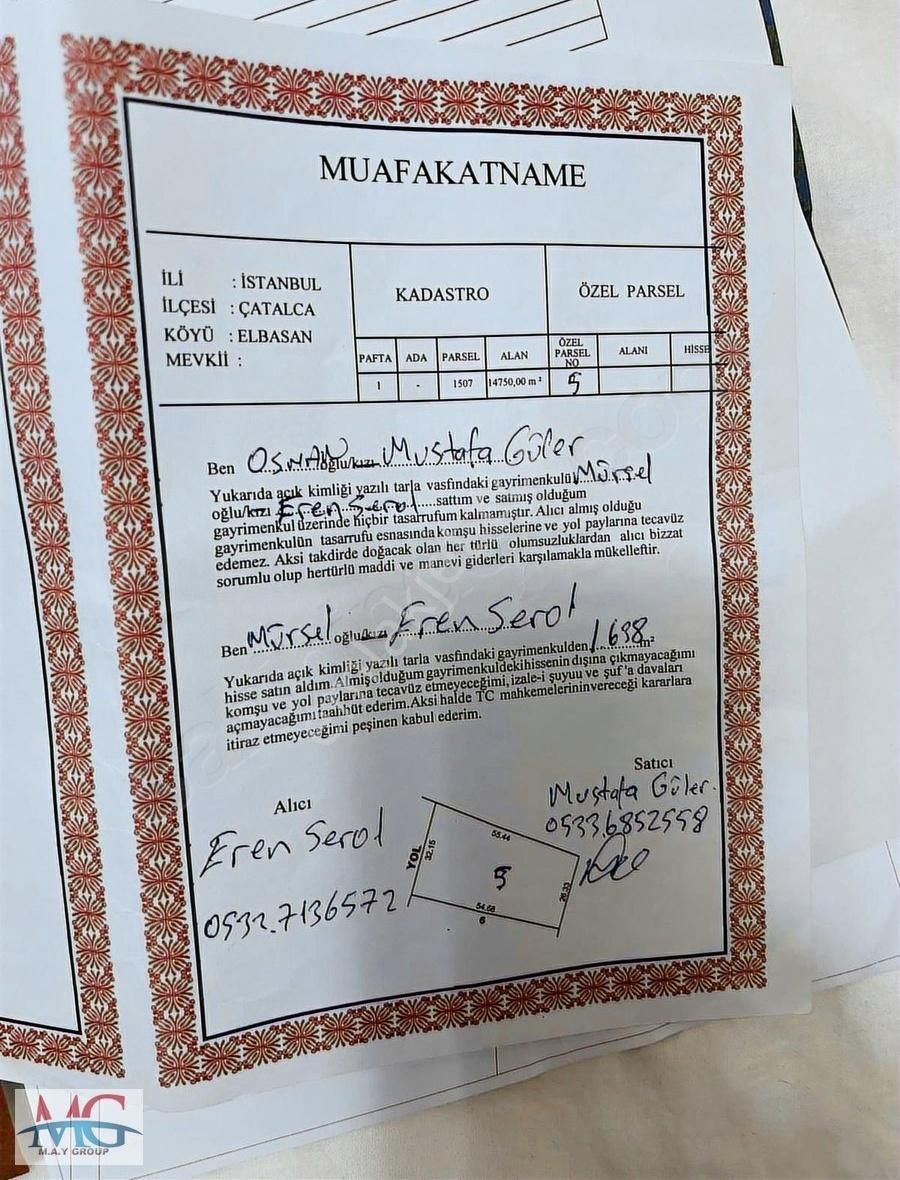 MUAFAKATNAME
İLİ : İSTANBUL
İLÇESİ : ÇATALCA
KÖYÜ : ELBASAN
MEVKİİ :
KADASTRO
ÖZEL PARSEL
PAFTA ADA PARSEL ALAN ÖZEL PARSEL NO ALANI HİSSE
1 - 1507 14750,00 m² 5
Ben OSMAN oğlu/kızı Mustafa Güler
Yukarıda açık kimliği yazılı tarla vasfındaki gayrimenkulü Mürsel
oğlu/kızı Eren Serol sattım ve satmış olduğum
gayrimenkul üzerinde hiçbir tasarrufum kalmamıştır. Alıcı almış olduğu
gayrimenkulün tasarrufu esnasında komşu hisselerine ve yol paylarına tecavüz
edemez. Aksi takdirde doğacak olan her türlü olumsuzluklardan alıcı bizzat
sorumlu olup hertürlü maddi ve manevi giderleri karşılamakla mükelleftir.
Ben Mürsel oğlu/kızı Eren Serol
Yukarıda açık kimliği yazılı tarla vasfındaki gayrimenkulden 1.638 m²
hisse satın aldım. Almiş olduğum gayrimenkuldeki hissenin dışına çıkmayacağımı
komşu ve yol paylarına tecavüz etmeyeceğimi, izale-i şuyuu ve şuf'a davaları
açmayacağımı taahhüt ederim. Aksi halde TC mahkemelerinin vereceği kararlara
itiraz etmeyeceğimi peşinen kabul ederim.
Satıcı
Mustafa Güler
0533.6852558
Alıcı
Eren Serol
0532.7136572
YOL
32.15
55.44
5
26.33
54.68
6
MG
M.A.Y GROUP